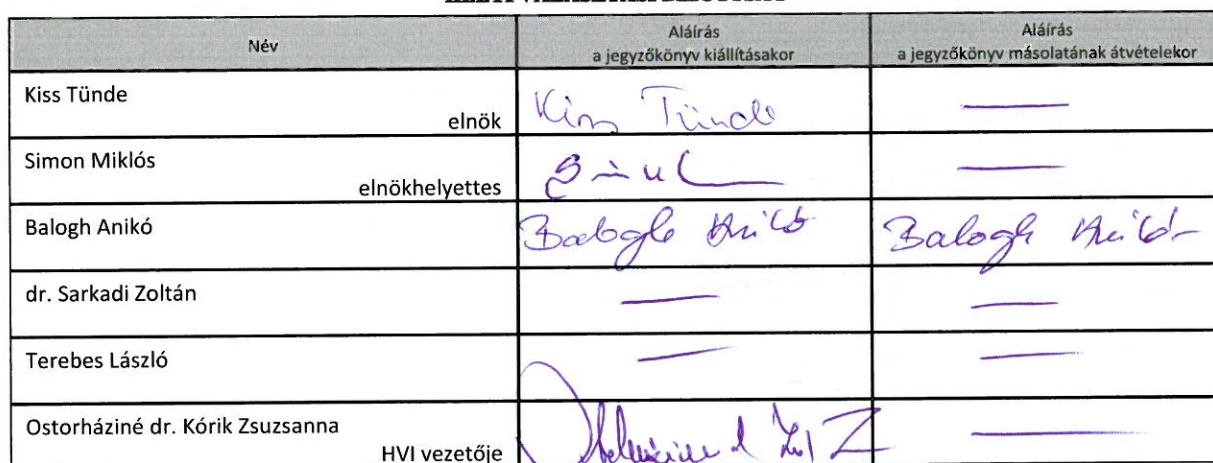 Név
Aláírás
a jegyzőkönyv kiállításakor
Aláírás
a jegyzőkönyv másolatának átvételekor
Kiss Tünde
elnök
Kiss Tünde
Simon Miklós
elnökhelyettes
Balogh Anikó
Balogh Anikó
Balogh Anikó
dr. Sarkadi Zoltán
Terebes László
Ostorháziné dr. Kórik Zsuzsanna
HVI vezetője